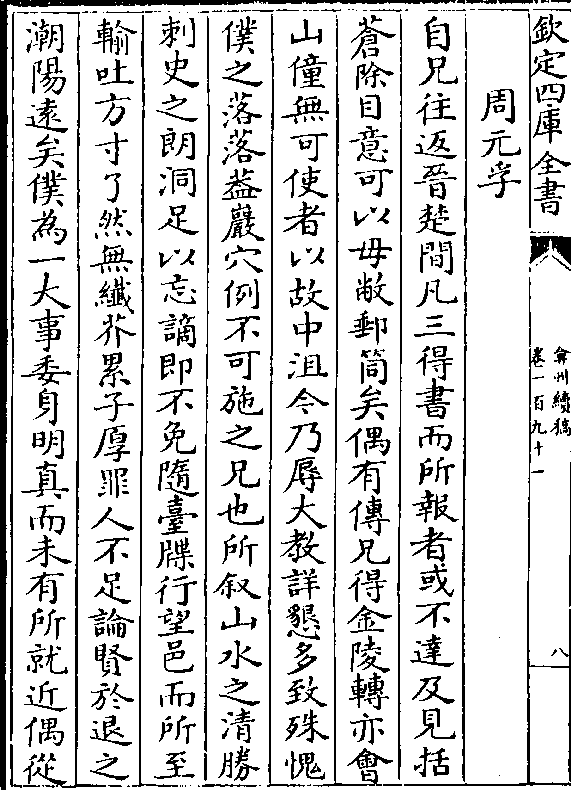 欽定四庫全書
弇州續稿
卷一百九十一
八
周元孚
自兄往返晉楚間凡三得書而所報者或不達及見括
蒼除目意可以毋敝郵筒矣偶有傳兄得金陵轉亦會
山僮無可使者以故中沮今乃辱大教詳懇多致殊愧
僕之落落葢巖穴例不可施之兄也所叙山水之清勝
刺史之朗洞足以忘謫即不免隨臺牒行望邑而所至
輸吐方寸了然無纖芥累子厚罪人不足論賢於退之
潮陽遠矣僕為一大事委身明真而未有所就近偶從